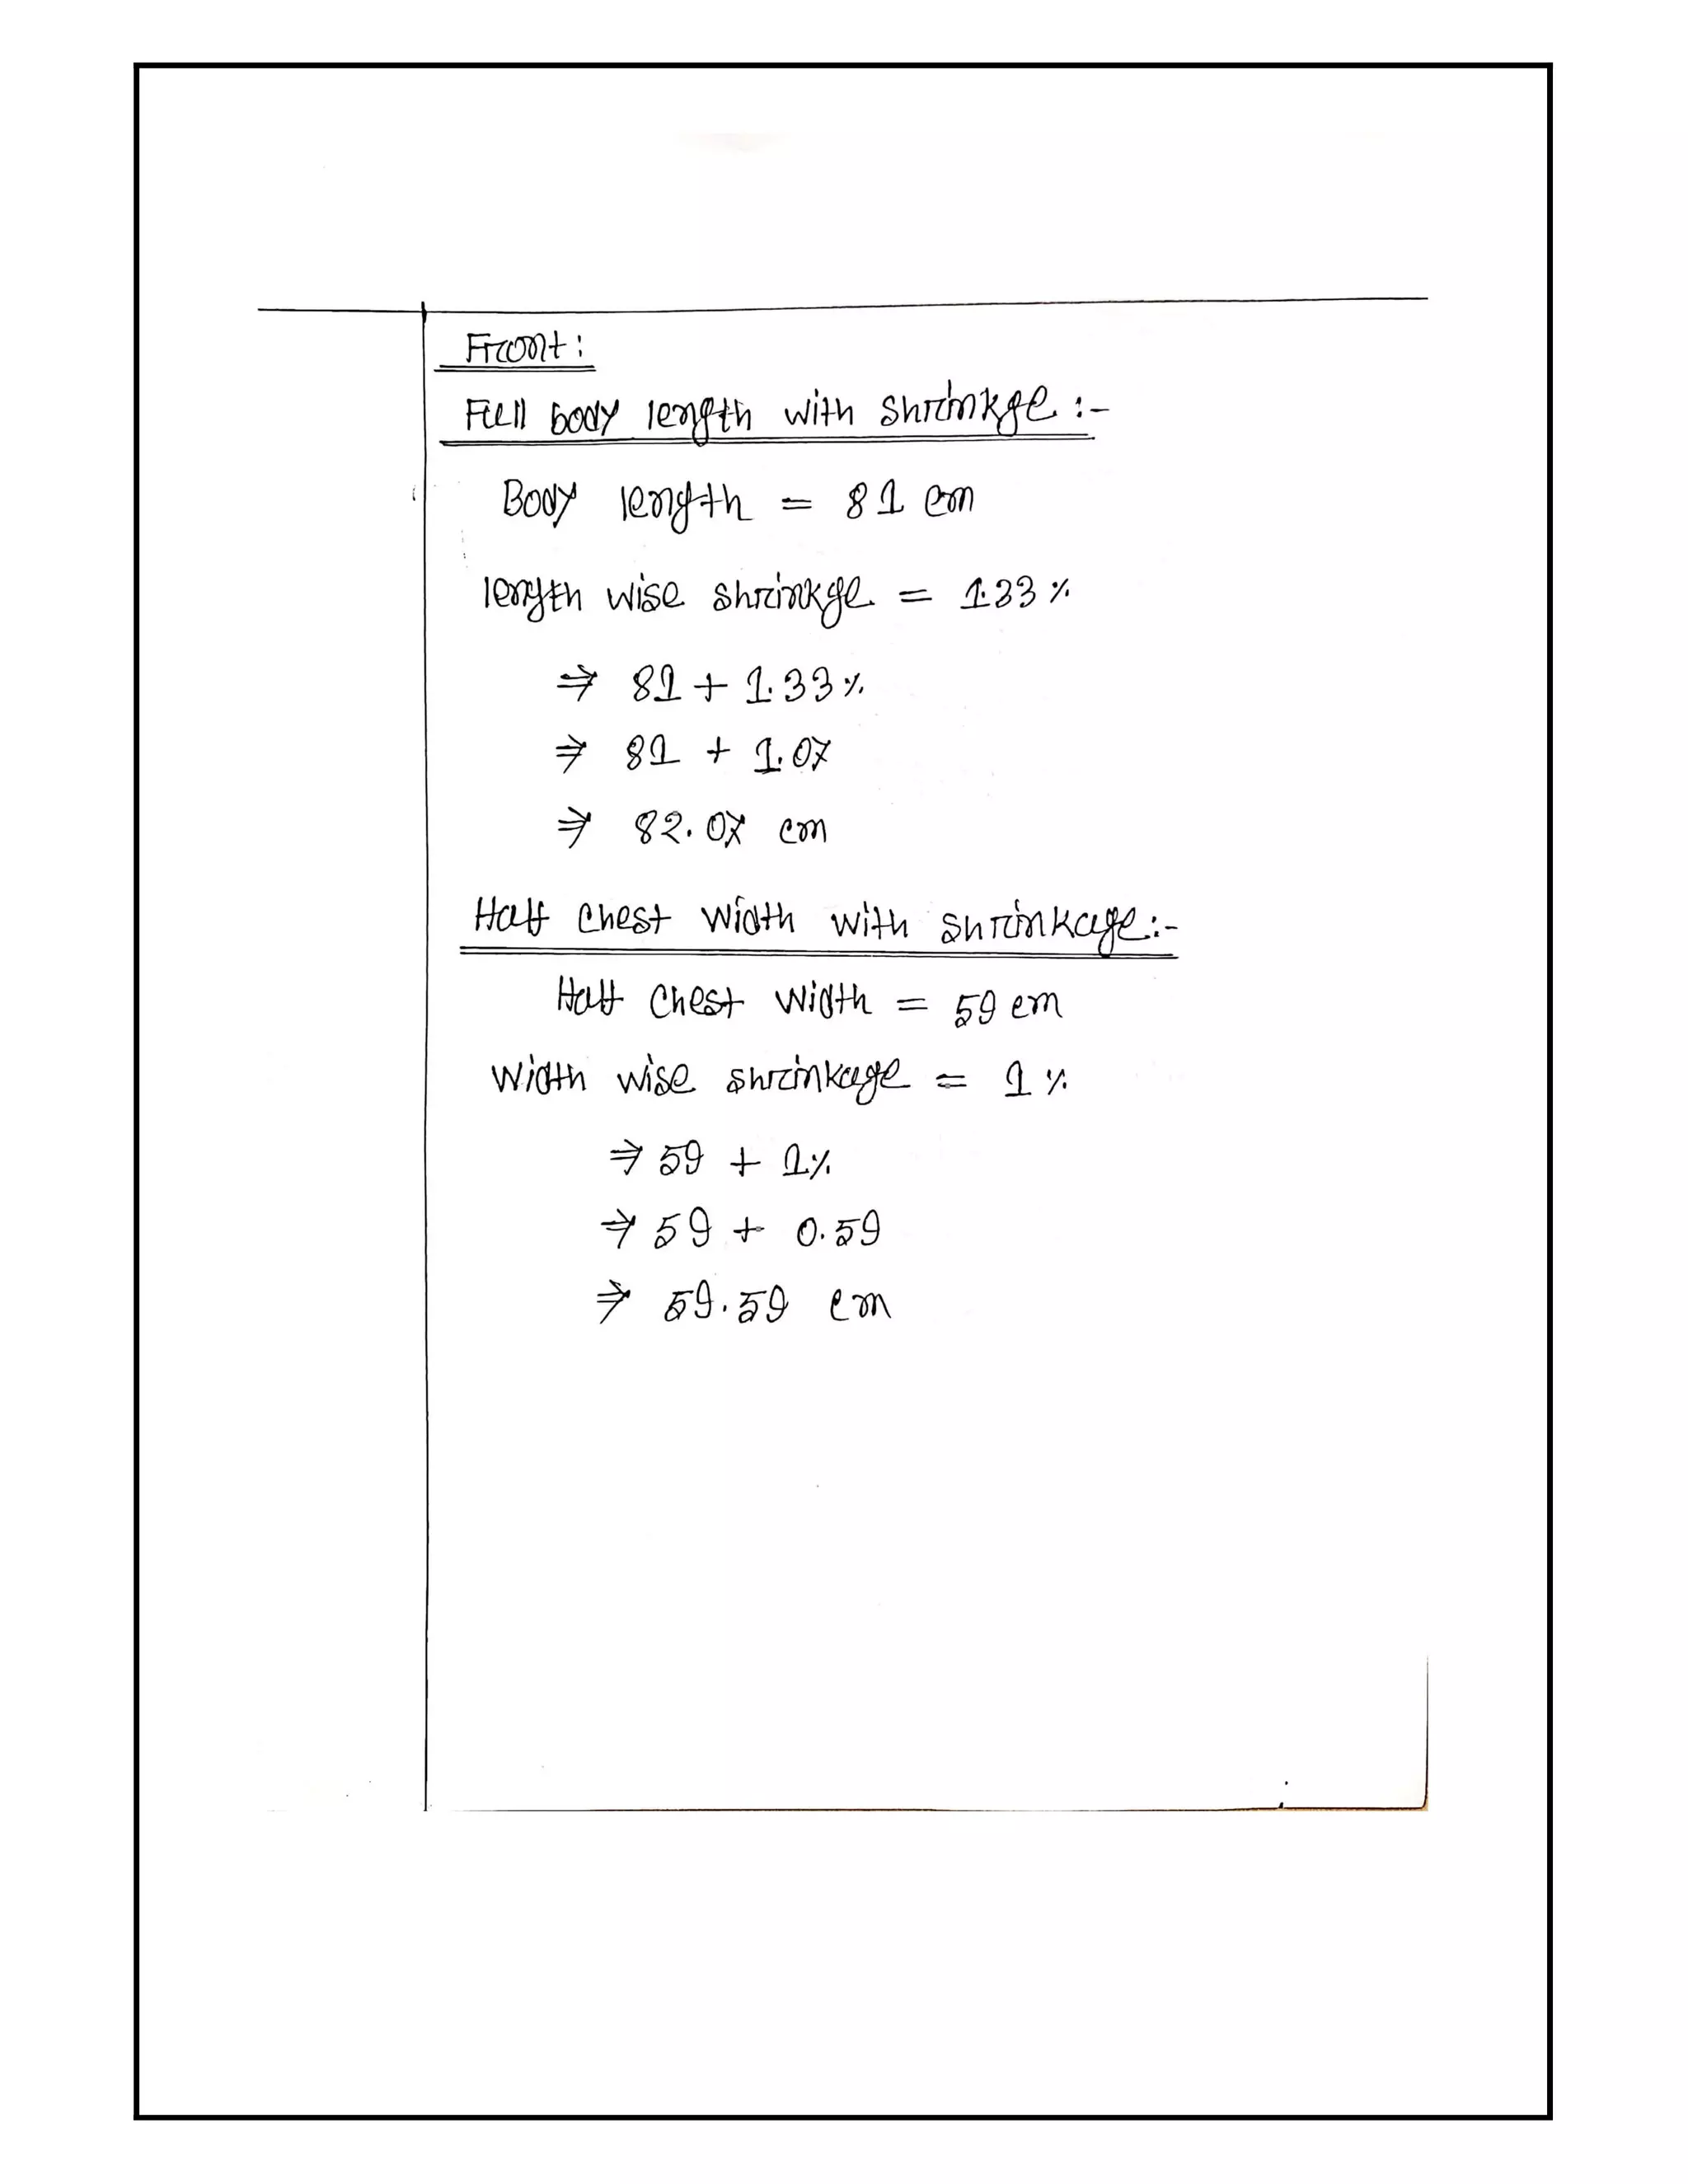 Front:
Full body length with shrinkge :-
Body length = 81 cm
length wise shrinkge = 1.33 %
⇒ 81 + 1.33 %
⇒ 81 + 1.07
⇒ 82.07 cm
Half chest width with shrinkage:-
Half chest width = 59 cm
width wise shrinkage = 1 %
⇒ 59 + 1%
⇒ 59 + 0.59
⇒ 59.59 cm